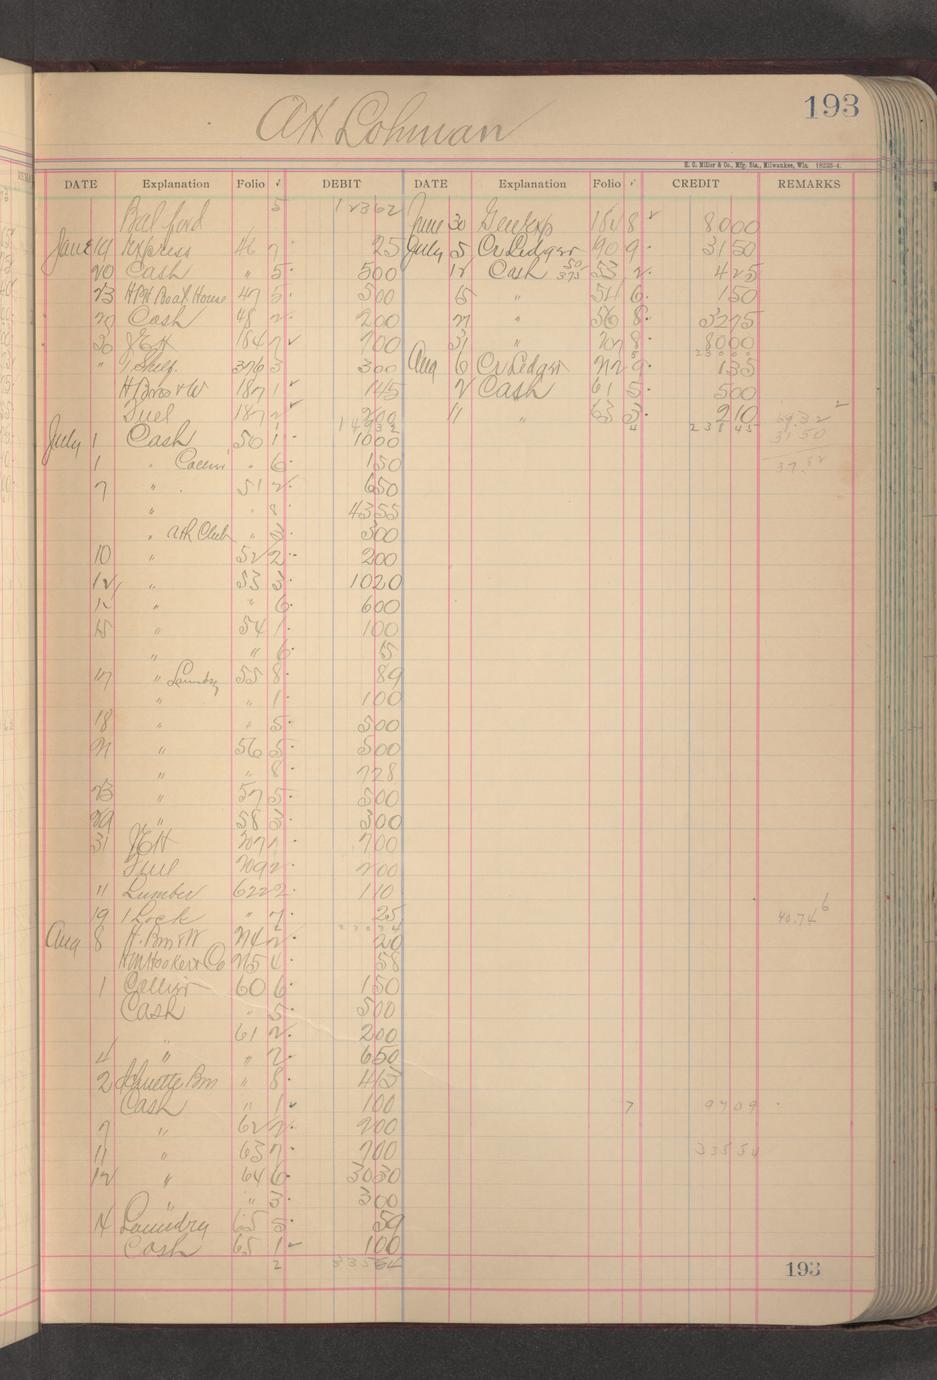 193
A H Lohman
H. C. Miller & Co., Mfg. Sta., Milwaukee, Wis. 18225-4.
DATE Explanation Folio ✓ DEBIT DATE Explanation Folio ✓ CREDIT REMARKS
Bal ford 5 12362 June 30 Genl Exp 184 8 8000
June 19 Express 46 7 25 July 5 Cr Ledger 90 9 3150
20 Cash " 5 500 12 Cash 50 375 53 2 425
23 HPH Boat House 47 5 500 15 " 54 6 150
Cash 48 2 200 21 " 56 8 3275
30 184 700 31 " 207 8 8000
" 1 Shelf 376 3 300 Aug 6 Cr Ledger 9 135
H Bros & W 187 1 145 2 Cash 61 5 500
Fuel 187 2 200 11 " 63 3 210
23845
69.32
July 1 Cash 50 1 1000 31 50
1 " " 6 150 37.82
7 " 51 2 650
" " 8 4355
" Ath Club " 3 300
10 " 52 2 200
12 " 53 3 1020
12 " " 6 600
15 " 54 1 100
" " 6 15
17 " Laundry 55 8 89
" " 1 100
18 " " 5 500
21 " 56 5 500
" " 8 728
23 " 57 5 500
29 " 58 3 300
31 207 700
Fuel 209 2 200
" Lumber 622 2 110
19 1 Lock " 7 25 40.74 6
Aug 8 H. Bros & W 2 20
HM Hooker & Co 4 58
1 60 6 150
Cash " 5 500
" 61 2 200
4 " " 2 650
2 Schuette Bros " 8 415
Cash " 1 100 7 9709
7 " 62 200
11 " 63 7 700 33554
12 " 64 6 3030
" " 3 300
14 Laundry 65 5 59
Cash 65 1 100
2 33554
193